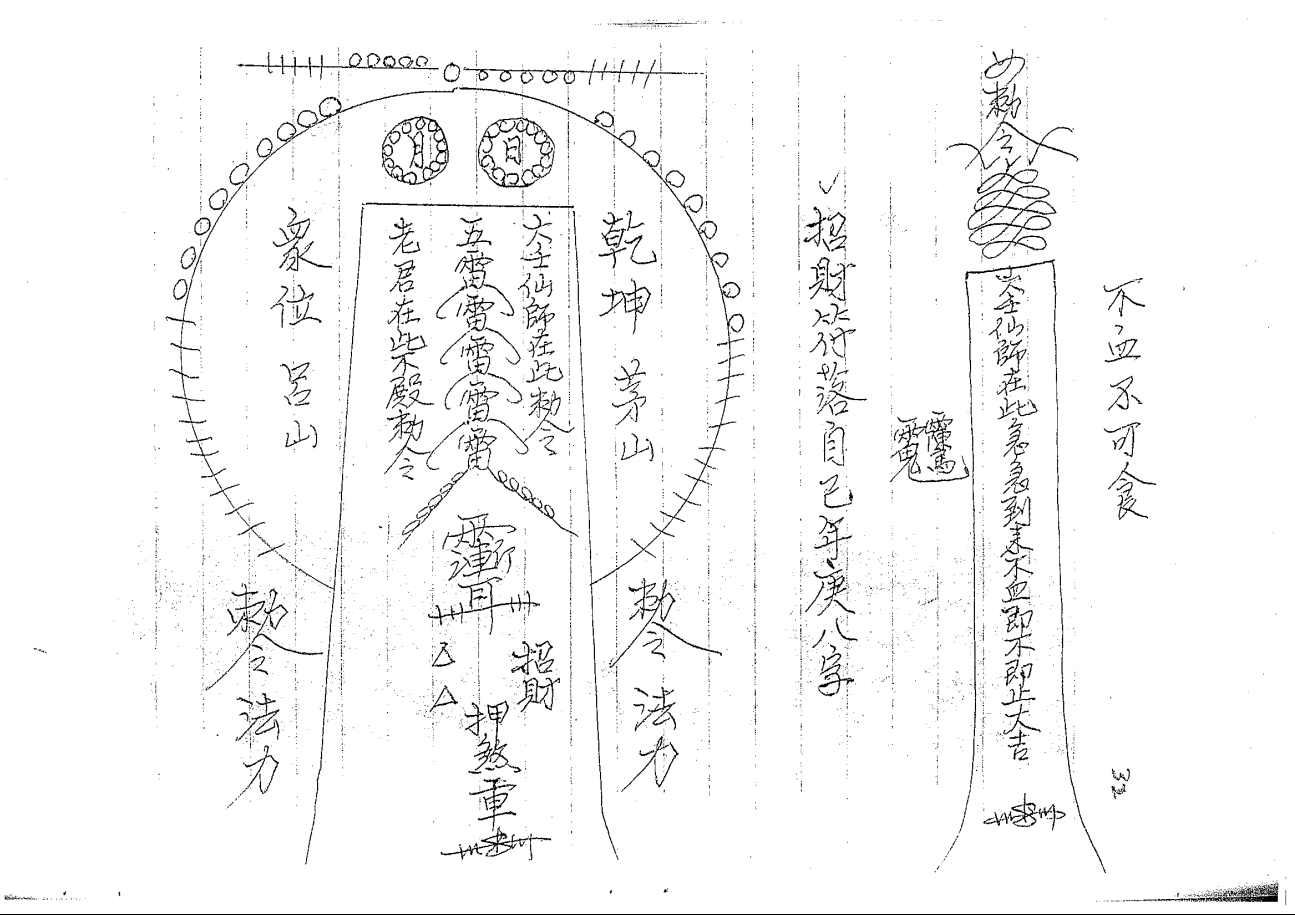 不血不可食
勅令
仙師在此急急到來不血即不即止大吉
32
招財符落自己年庚八字
日
月
乾坤 茅山
勅令法力
仙師在此勅令
五雷雷雷雷雷
老君在此下殿勅令
眾位 呂山
勅令法力
招財
押煞